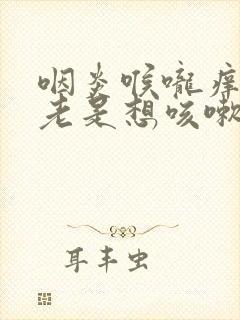 咽炎喉咙痒
老是想咳嗽
耳丰虫